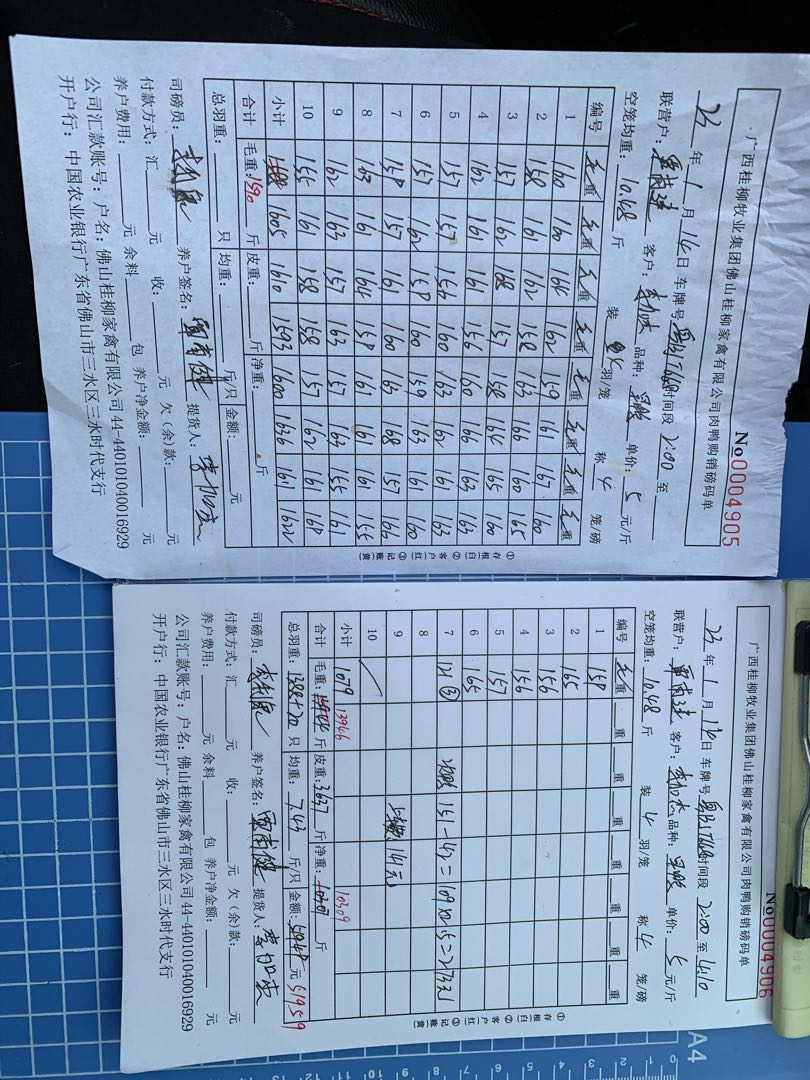 广西桂柳牧业集团佛山桂柳家禽有限公司肉鸭购销磅码单
№0004905
年 1 月 14 日 车牌号 时间段 2:00 至
联营户： 客户： 品种： 单价：5 元/斤
空笼均重：10.48 斤 装 羽/笼 称 4 笼/磅
编号 毛重 毛重 毛重 毛重 毛重 毛重 毛重 毛重
1 160 160 164 162 159 161 167 160
2 158 161 162 158 163 166 160 165
3 157 162 168 157 158 164 165 160
4 162 161 161 156 160 166 163 163
5 157 157 156 160 163 162 161 163
6 157 162 158 160 159 163 161 160
7 158 157 161 160 163 168 157 166
8 163 161 164 158 161 161 161 155
9 162 163 157 163 157 163 155 161
10 155 161 158 158 157 162 161 168
小计 1605 1610 1593 1600 1636 1611 1622
合计 毛重：1590 斤 皮重： 斤 净重： 斤
总羽重： 只 均重： 斤/只 金额： 元
司磅员： 养户签名： 提货人：
付款方式：汇 元 收： 元 欠（余）款： 元
养户费用： 元 余料 包 养户净金额： 元
公司汇款账号：户名：佛山桂柳家禽有限公司 44-440101040016929
开户行：中国农业银行广东省佛山市三水区三水时代支行
①存根（白）②客户（红）③记账（黄）
广西桂柳牧业集团佛山桂柳家禽有限公司肉鸭购销磅码单
№0004906
年 1 月 14 日 车牌号 时间段 2:00 至 4:10
联营户： 客户： 品种： 单价：5 元/斤
空笼均重：10.48 斤 装 4 羽/笼 称 4 笼/磅
编号 毛重 重 重 重 重 重 重 重
1 158
2 165
3 156
4 156
5 157
6 165
7 121 ③ 151-42=109×2.5=273元
8
9 141元
10
小计 1079 13966 10309
合计 毛重： 斤 皮重：3637 斤 净重： 斤
总羽重：1388+2 只 均重：7.43 斤/只 金额： 元 51959
司磅员： 养户签名： 提货人：
付款方式：汇 元 收： 元 欠（余）款： 元
养户费用： 元 余料 包 养户净金额： 元
公司汇款账号：户名：佛山桂柳家禽有限公司 44-440101040016929
开户行：中国农业银行广东省佛山市三水区三水时代支行
①存根（白）②客户（红）③记账（黄）
A4
0 1 2 3 4 5 6 7 8